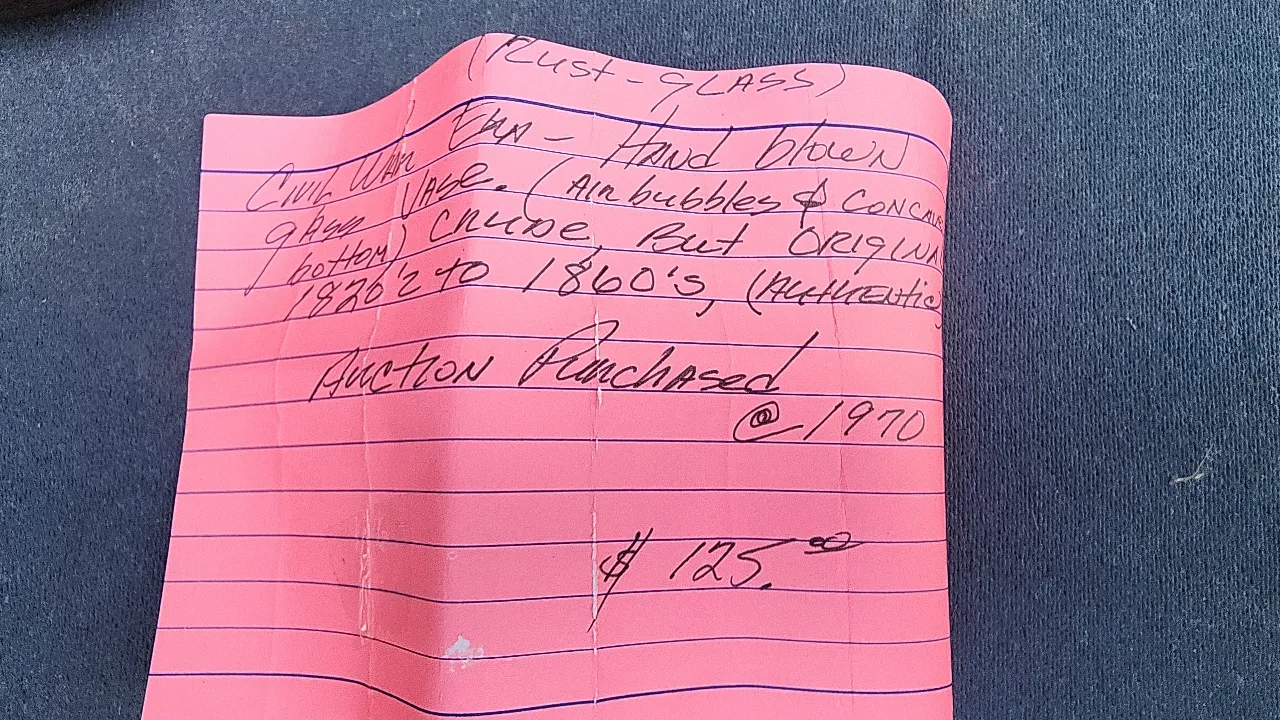 (Rust-glass)
Civil War Era - Hand blown
glass Vase. (Air bubbles & Concave
bottom) Crude, But Original
1820's to 1860's, (Authentic)
Auction Purchased
@ 1970
$ 125.00